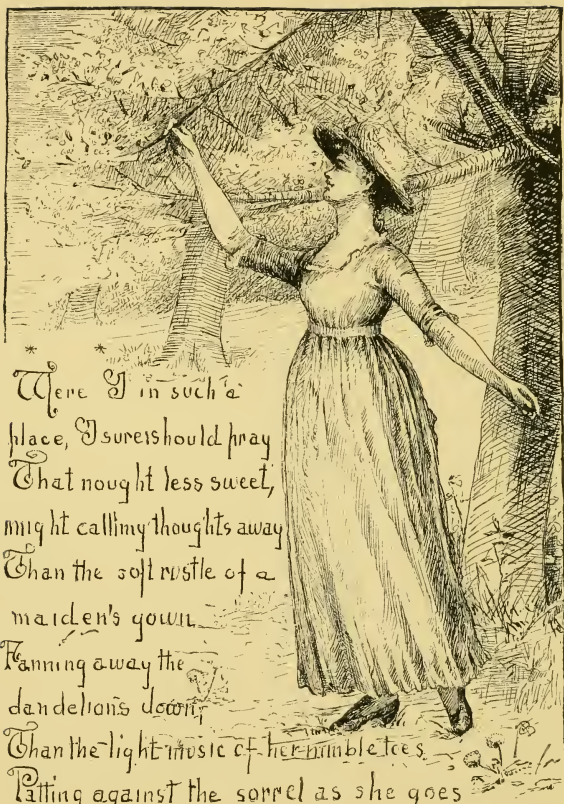 * *
Were I in such a
place, I sure should pray
That nought less sweet,
might call my thoughts away
Than the soft rustle of a
maiden's gown
Fanning away the
dandelion's down;
Than the light music of her nimble toes
Patting against the sorrel as she goes